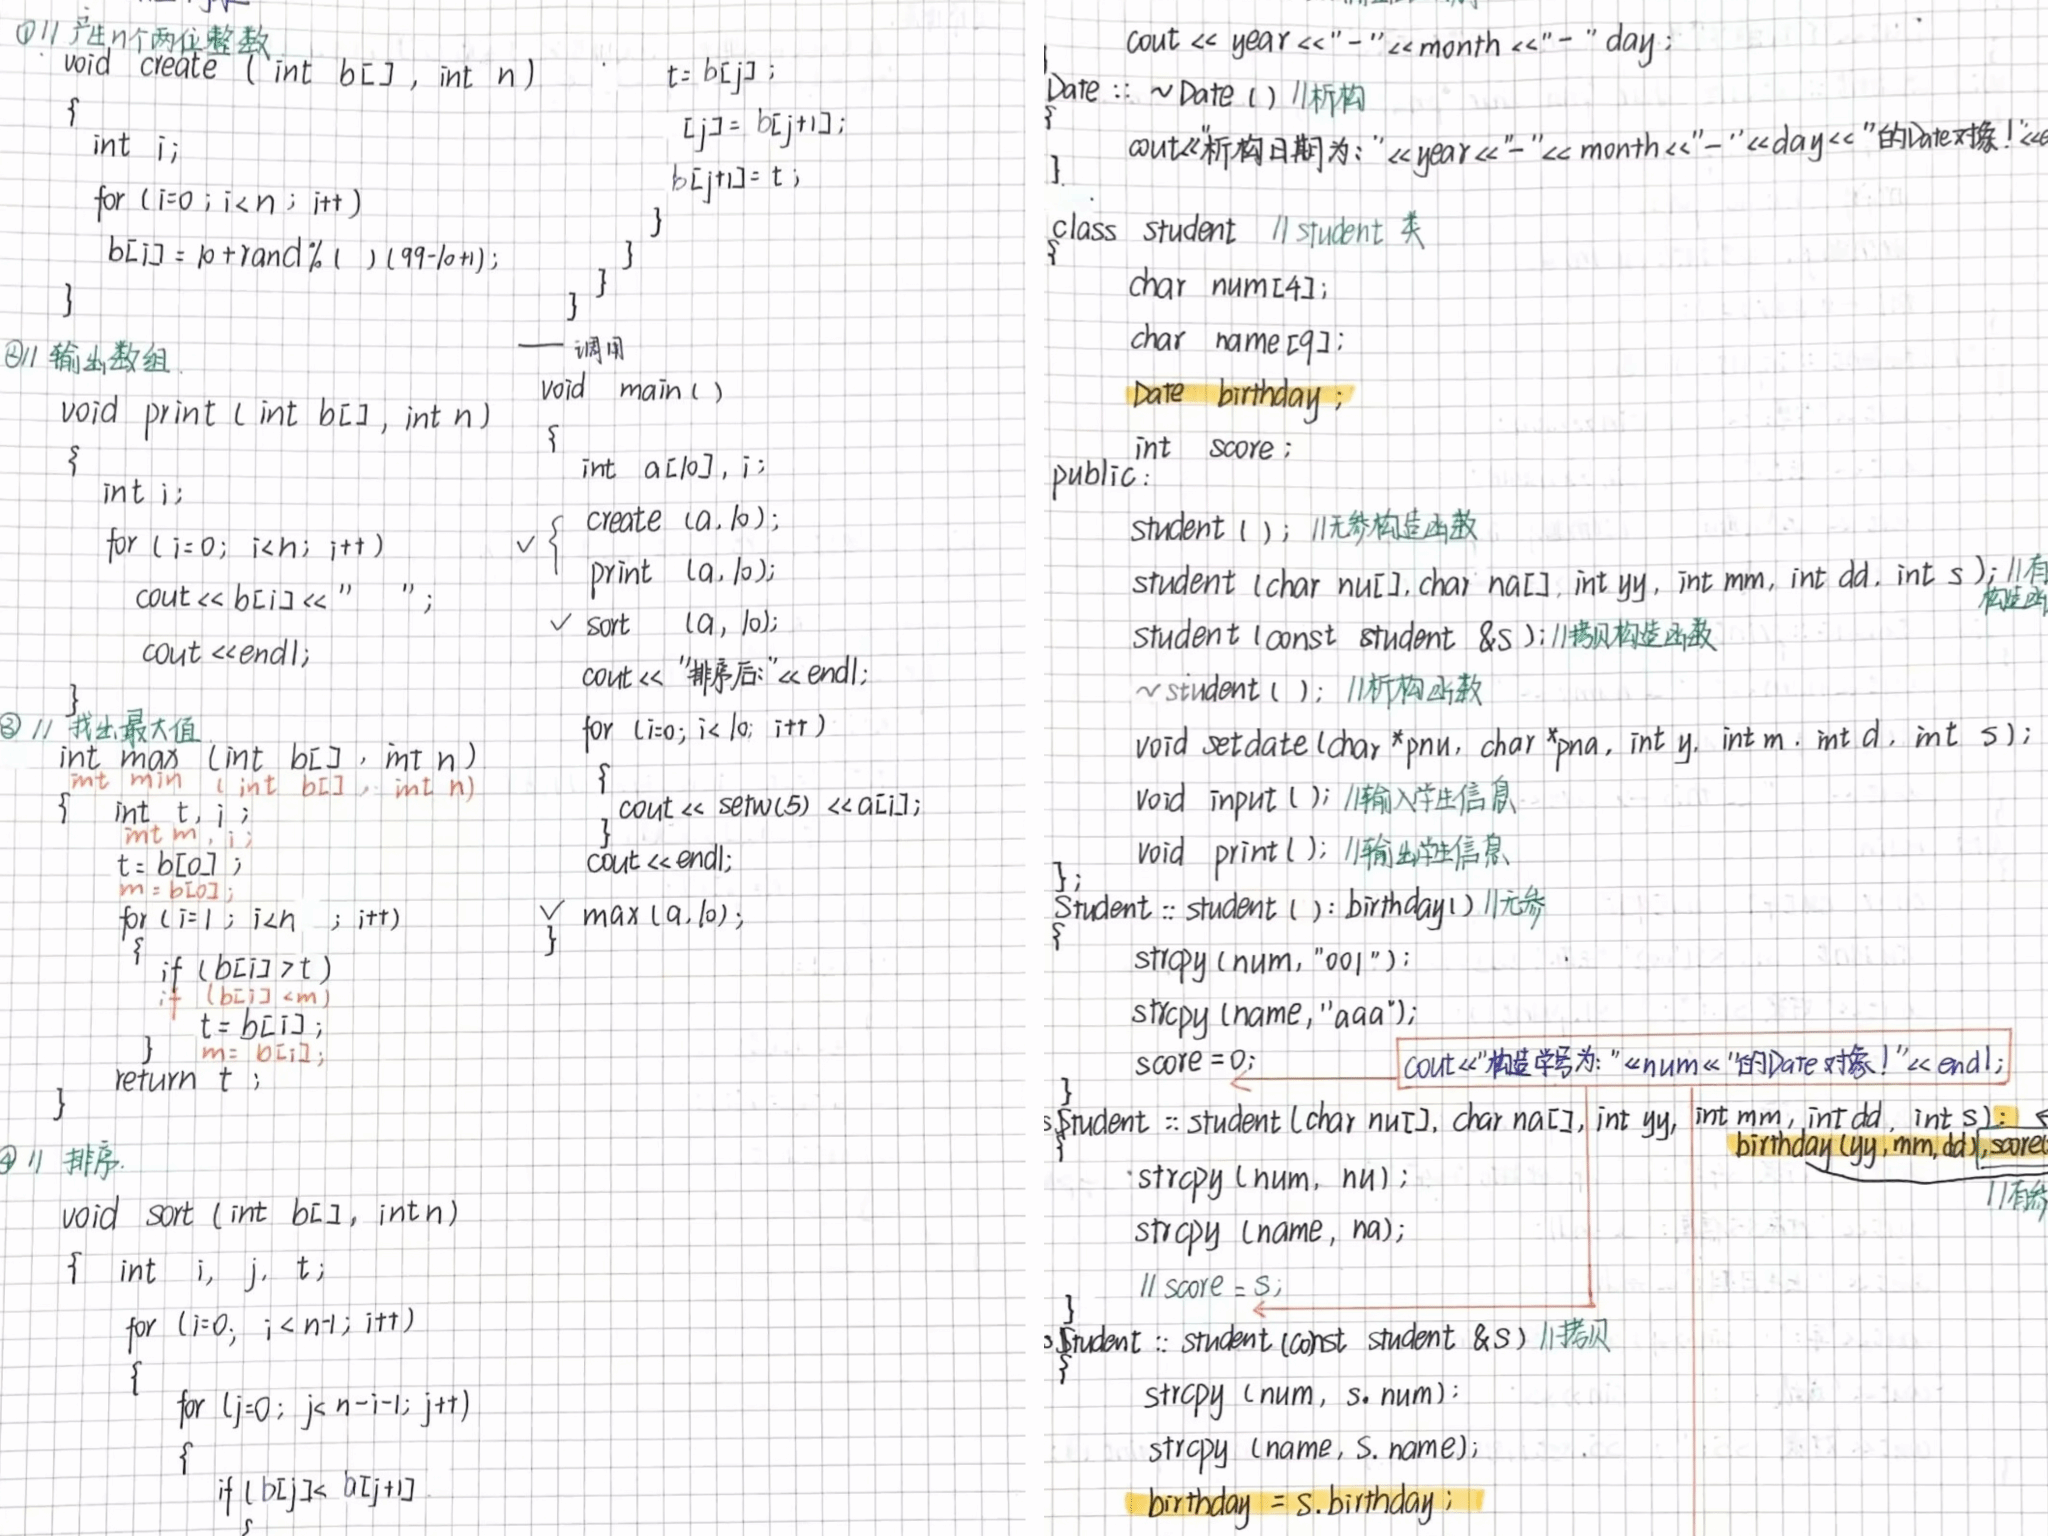 ①// 产生n个两位整数
void create (int b[], int n)
{
int i;
for (i=0; i<n; i++)
b[i] = 10+rand%( )(99-10+1);
}
②// 输出数组
void print (int b[], int n)
{
int i;
for (i=0; i<n; i++)
cout<<b[i]<<"  ";
cout<<endl;
}
③// 找出最大值
int max (int b[], int n)
int min (int b[], int n)
{ int t, i;
int m, i;
t=b[0];
m=b[0];
for (i=1; i<n ; i++)
{
if (b[i]>t)
if (b[i]<m)
t=b[i];
} m=b[i];
return t;
}
④// 排序
void sort (int b[], int n)
{ int i, j, t;
for (i=0; i<n-1; i++)
{
for (j=0; j<n-i-1; j++)
{
if (b[j]< a[j+1]
{
t=b[j];
[j]=b[j+1];
b[j+1]=t;
}
}
}
}
—— 调用
void main()
{
int a[10], i;
create (a,10);
print (a,10);
sort (a,10);
cout<<"排序后:"<<endl;
for (i=0; i<10; i++)
{
cout<<setw(5)<<a[i];
}
cout<<endl;
max(a,10);
}
cout<<year<<"-"<<month<<"-" day;
}
Date :: ~Date () //析构
{
cout<<"析构日期为:"<<year<<"-"<<month<<"-"<<day<<"的Date对象!"<<
}
class student //student 类
{
char num[4];
char name[9];
Date birthday;
int score;
public:
student(); //无参构造函数
student(char nu[], char na[], int yy, int mm, int dd, int s); //有
构造函
student(const student &s); //拷贝构造函数
~student(); //析构函数
void setdate(char *pnu, char *pna, int y, int m, int d, int s);
void input(); //输入学生信息
void print(); //输出学生信息
};
Student :: student(): birthday() //无参
{
strcpy(num,"001");
strcpy(name,"aaa");
score=0;
cout<<"构造学号为:"<<num<<"的Date对象!"<<endl;
}
Student :: student(char nu[], char na[], int yy, int mm, int dd, int s):
birthday(yy,mm,dd),score(
//有参
{
strcpy(num, nu);
strcpy(name, na);
//score=s;
}
Student :: student(const student &s) //拷贝
{
strcpy(num, s.num);
strcpy(name, s.name);
birthday = s.birthday;